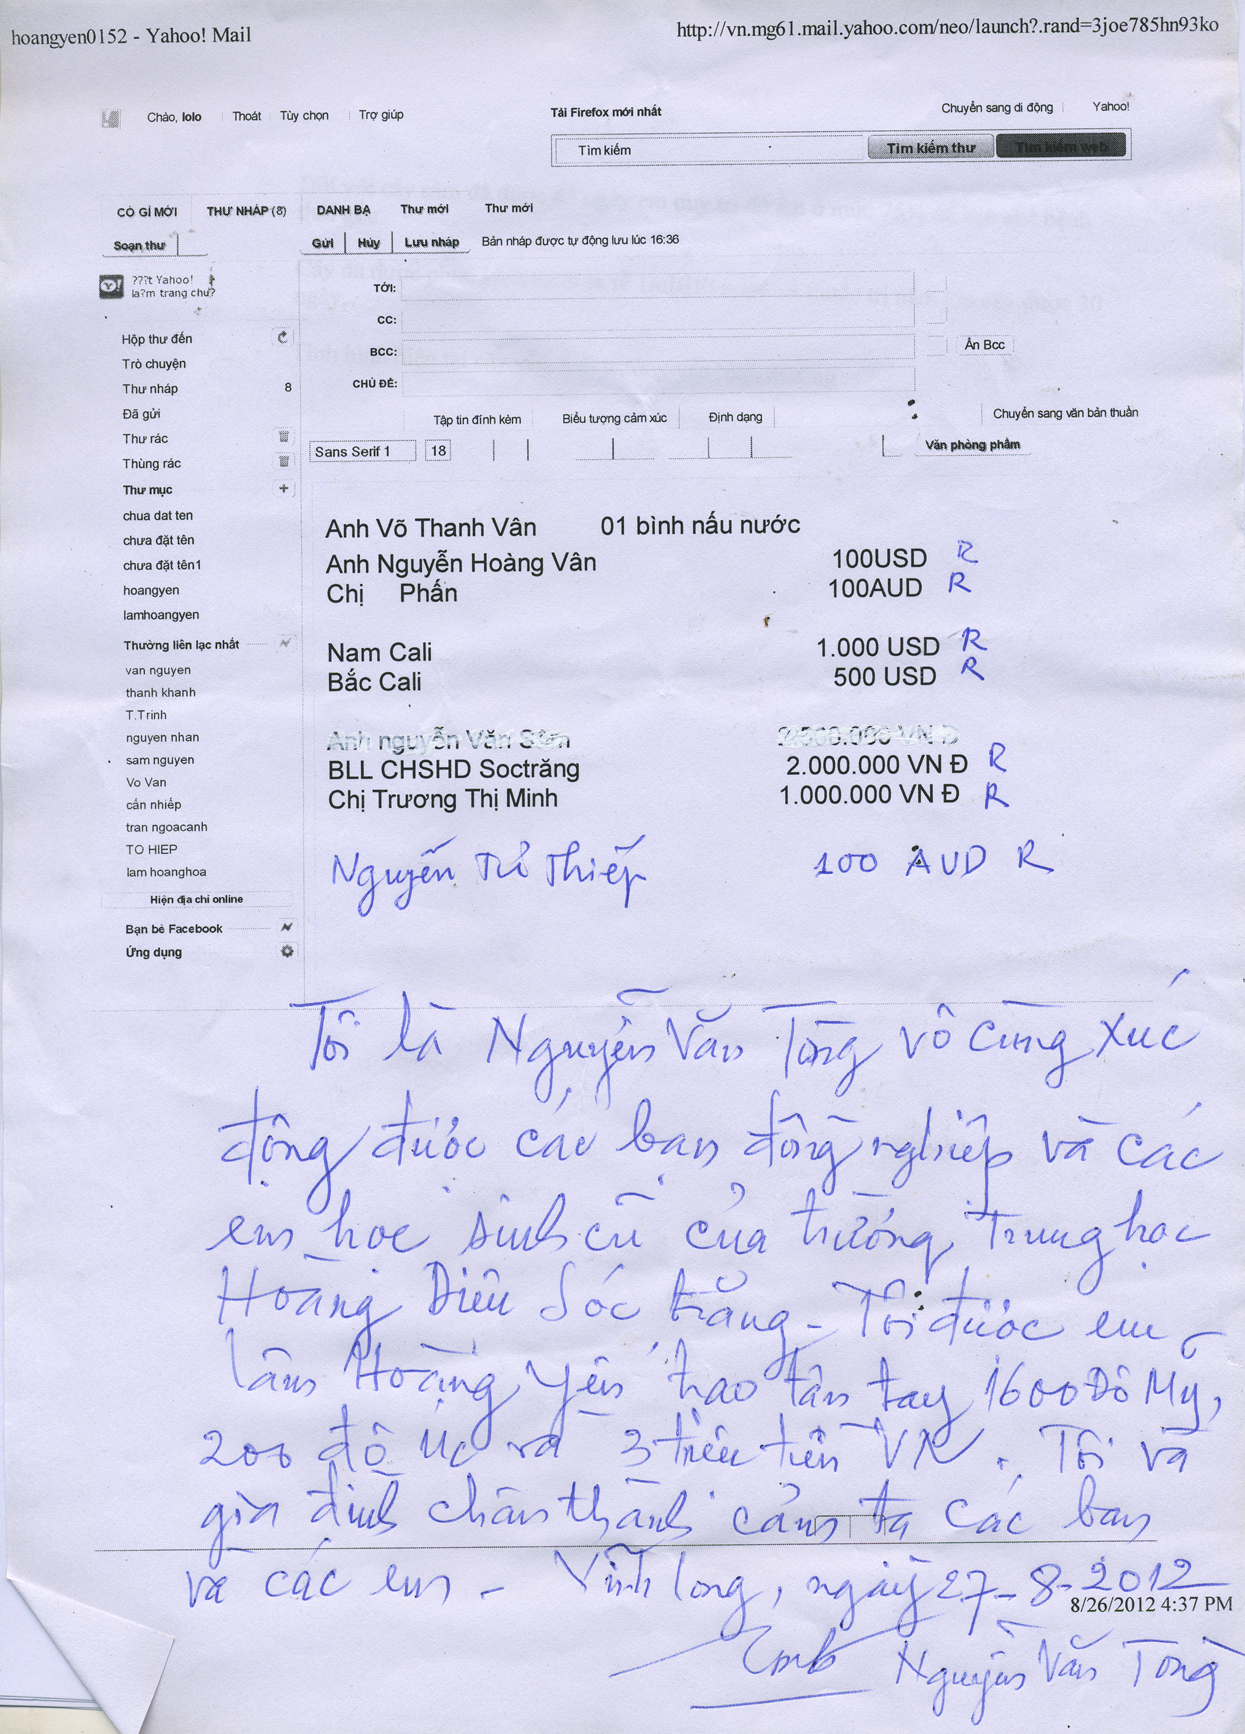 hoangyen0152 - Yahoo! Mail
http://vn.mg61.mail.yahoo.com/neo/launch?.rand=3joe785hn93ko
Chào, lolo Thoát Tùy chọn Trợ giúp
Tải Firefox mới nhất
Chuyển sang di động Yahoo!
Tìm kiếm Tìm kiếm thư Tìm kiếm web
CÓ GÌ MỚI THƯ NHÁP (8) DANH BẠ Thư mới Thư mới
Soạn thư Gửi Hủy Lưu nháp Bản nháp được tự động lưu lúc 16:36
???t Yahoo!
la?m trang chu?
TỚI:
CC:
BCC: Ẩn Bcc
CHỦ ĐỀ:
Hộp thư đến
Trò chuyện
Thư nháp 8
Đã gửi
Thư rác
Thùng rác
Thư mục
chua dat ten
chưa đặt tên
chưa đặt tên1
hoangyen
lamhoangyen
Thường liên lạc nhất
van nguyen
thanh khanh
T.Trinh
nguyen nhan
sam nguyen
Vo Van
cẩn nhiếp
tran ngoacanh
TO HIEP
lam hoanghoa
Hiện địa chỉ online
Bạn bè Facebook
Ứng dụng
Tập tin đính kèm Biểu tượng cảm xúc Định dạng Chuyển sang văn bản thuần
Sans Serif 1 18 Văn phòng phẩm
Anh Võ Thanh Vân 01 bình nấu nước
Anh Nguyễn Hoàng Vân 100USD R
Chị Phấn 100AUD R
Nam Cali 1.000 USD R
Bắc Cali 500 USD R
Anh nguyễn Văn .500.000 VN Đ
BLL CHSHD Soctrăng 2.000.000 VN Đ R
Chị Trương Thị Minh 1.000.000 VN Đ R
Nguyễn Tử Thiếp 100 AUD R
Tôi là Nguyễn Văn Tòng vô cùng xúc
động được các bạn đồng nghiệp và các
em học sinh cũ của trường Trung học
Hoàng Diệu Sóc trăng - Tôi được em
Lâm Hoàng Yến trao tận tay 1600 Đô Mỹ,
200 đô Úc và 3 triệu tiền VN. Tôi và
gia đình chân thành cảm tạ các bạn
và các em - Vĩnh long, ngày 27-8-2012
8/26/2012 4:37 PM
Nguyễn Văn Tòng